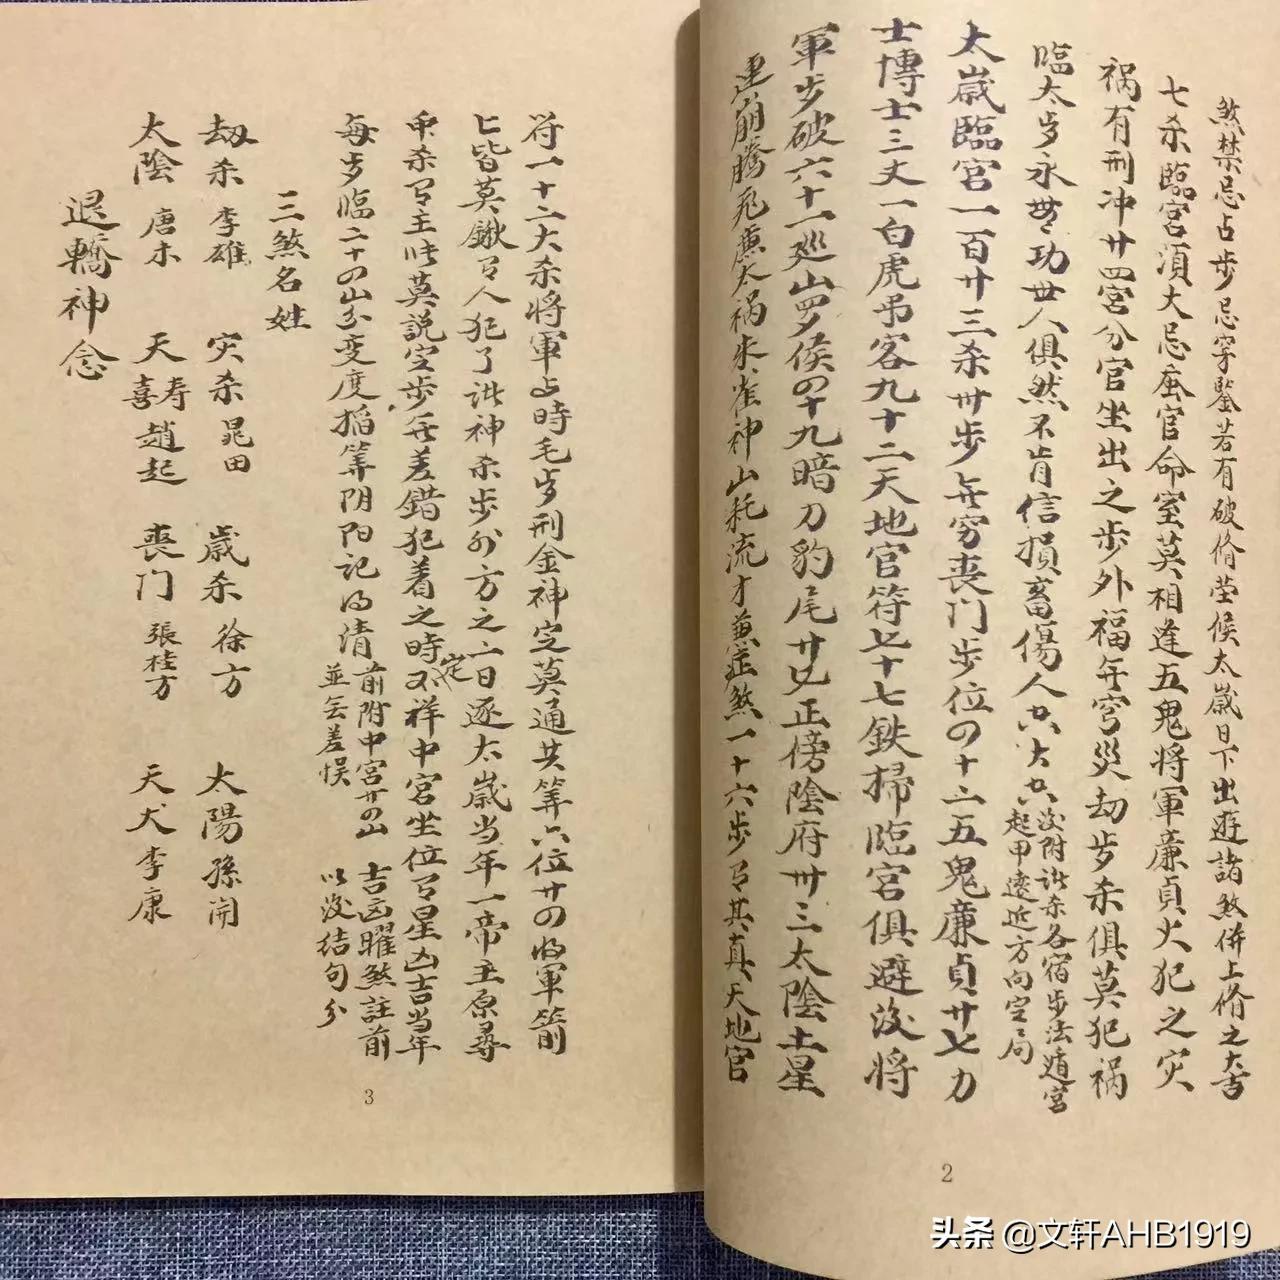 煞禁忌占步忌穿鑿若有破脩茔候太歲日下出遊諸煞併上脩之大吉
七杀臨宮須大忌蚕官命室莫相逢五鬼将軍廉貞火犯之灾
祸有刑冲廿四宮分官坐出之步外福年穹災劫步杀俱莫犯祸
臨太岁永無功世人俱然不肯信損畜傷人
没附此杀各宿步法遁宮
起甲遠近方向定局
太歲臨宮一百廿三杀卅步年穷喪门步位四十二五鬼廉貞廿七力
士博士三丈一白虎吊客九十二天地官符七十七鉄掃臨宮俱避没将
軍步破六十一巡山罗侯四十九暗刀豹尾廿正傍陰府卅三太陰土星
連崩騰飛廉太祸朱雀神山耗流才煞一十六步其真天地官
符一十二大杀将軍占時毛岁刑金神定莫通共筭六位廿四将軍箭
匕皆莫鍬人犯了此神杀步外方之一日逐太歲当年一帝主原尋
杀主此莫説定步年差錯犯着之時不祥中宮坐位星凶吉当年
定
每岁臨二十四山分变度掐筭阴阳记得清
前附中宮廿四山 吉凶曜煞註前
並無差悮 以没结句分
三煞名姓
劫杀 李雄 灾杀 晁田 歲杀 徐方 太陽 孫開
太陰 唐木 天喜寿 趙起 喪门 張桂方 天犬 李康
退轎神念
3
2
头条 @文轩AHB1919